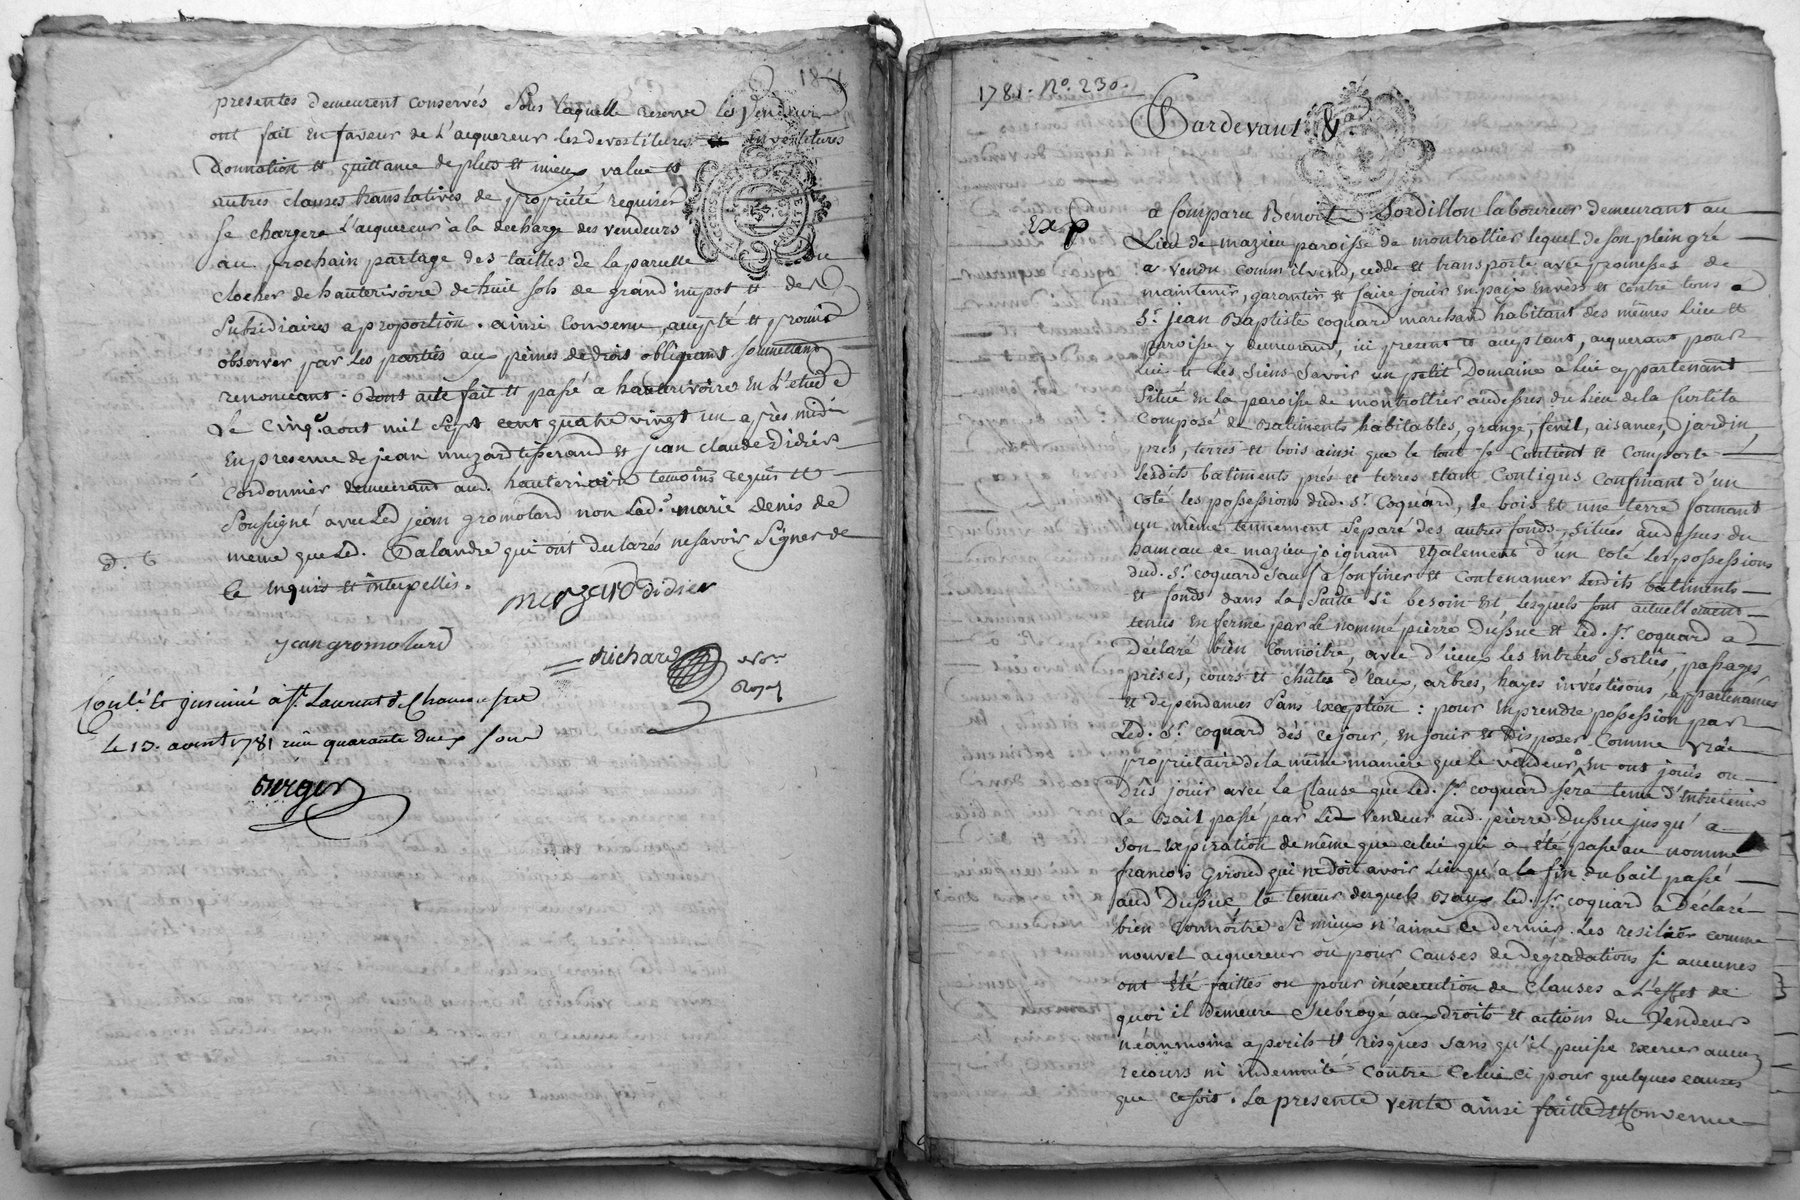 presentes demeurent conservés sous laquelle reserve les Vendeurs
ont fait en faveur de l'acquereur les devestitures et investitures
Donnation et quittance de plus et mieux value et
autres clauses translatives de propriété requises
se chargera l'acquereur à la decharge des vendeurs
au prochain partage des tailles de la parcelle du
clocher de hauterivoire de huit sols de grand impot et des
subsidiaires a proportion. ainsi convenu, accepté et promis
observer par les parties aux peines de droit obligeant soumettant
renonceant. Dont acte fait et passé a hauterivoire en l'etude
Le cinq aout mil sept cent quatre vingt un après midi
en presence de jean muzard tisserand et jean claude Didier
cordonnier demeurant aud. hauterivoire temoins requis et
soussigné avec led jean gromolard non lad. marie denis de
meme que led. Dalandre qui ont declarés ne savoir signer de
ce enquis et interpellés.
muzard didier
jean gromolard
Richard Nore
Royal
Conlé et insinué à St. Laurent de Chamousset
Le 13. aoust 1781 reçu quarante deux sous
Berger
1781. No. 230.
Pardevant &a
Exp
a comparu Benoit Dordillon laboureur demeurant au
Lieu de mazieu paroisse de montrottier lequel de son plein gré
a vendu comm'il vend, cedde et transporte avec promesses de
maintenir, garantir et faire jouir en paix envers et contre tous a
Sr. jean Baptiste coquard marchand habitant des mêmes lieu et
paroisse y demeurant, ici present et acceptant, acquerant pour
lui et les siens Savoir un petit Domaine a lui appartenant
Situé en la paroisse de montrottier audessus du lieu de la
Composé de Batiments, habitables, grange, fenil, aisances, jardin,
prés, terres et bois ainsi que le tout se Contient et Comporte
lesdits batiments prés et terres etant Contigus Confinant d'un
coté les possessions dud. Sr. Coquard, le bois et une terre formant
un même tennement separé des autres fonds, situés audessus du
hameau de mazieu joignant Egalement d'un coté les possessions
dud. Sr. coquard sauf a confiner et contenancer lesdits batiments
et fonds dans la suitte si besoin est, lesquels sont actuellement
tenus en ferme par le nommé pierre Dussuc et led. Sr. coquard a
Déclaré bien connoitre, avec d'iceux les entrées sorties, passages
prises, cours et chûtes d'eaux, arbres, hayes investisons, appartenances
et dependances sans exception : pour en prendre possession par
Led. Sr. coquard dès ce jour, en jouir et Disposer comme vrai
propriétaire de la même maniere que le vendeur en ont jouis ou
Dûs jouir avec la Clause que led. Sr. coquard sera tenu d'entretenir
Le Bail passé par led vendeur aud. pierre Dussuc jusqu'a
son expiration de même que celui qui a été passé au nommé
francois Giroud qui ne doit avoir lieu qu'a la fin du bail passé
aud Dussuc, la teneur desquels Baux led. Sr. coquard a Déclaré
bien connoître si mieux n'aime ce dernier les resilier comme
nouvel acquereur ou pour causes de degradations si aucunes
ont été faittes ou pour inéxecution de clauses a l'effet de
quoi il demeure subrogé aux droits et actions du Vendeur
néanmoins a perils et risques sans qu'il puisse exercer aucun
recours ni indemnité contre celui ci pour quelques causes
que ce soit. La presente vente ainsi faitte et Convenue